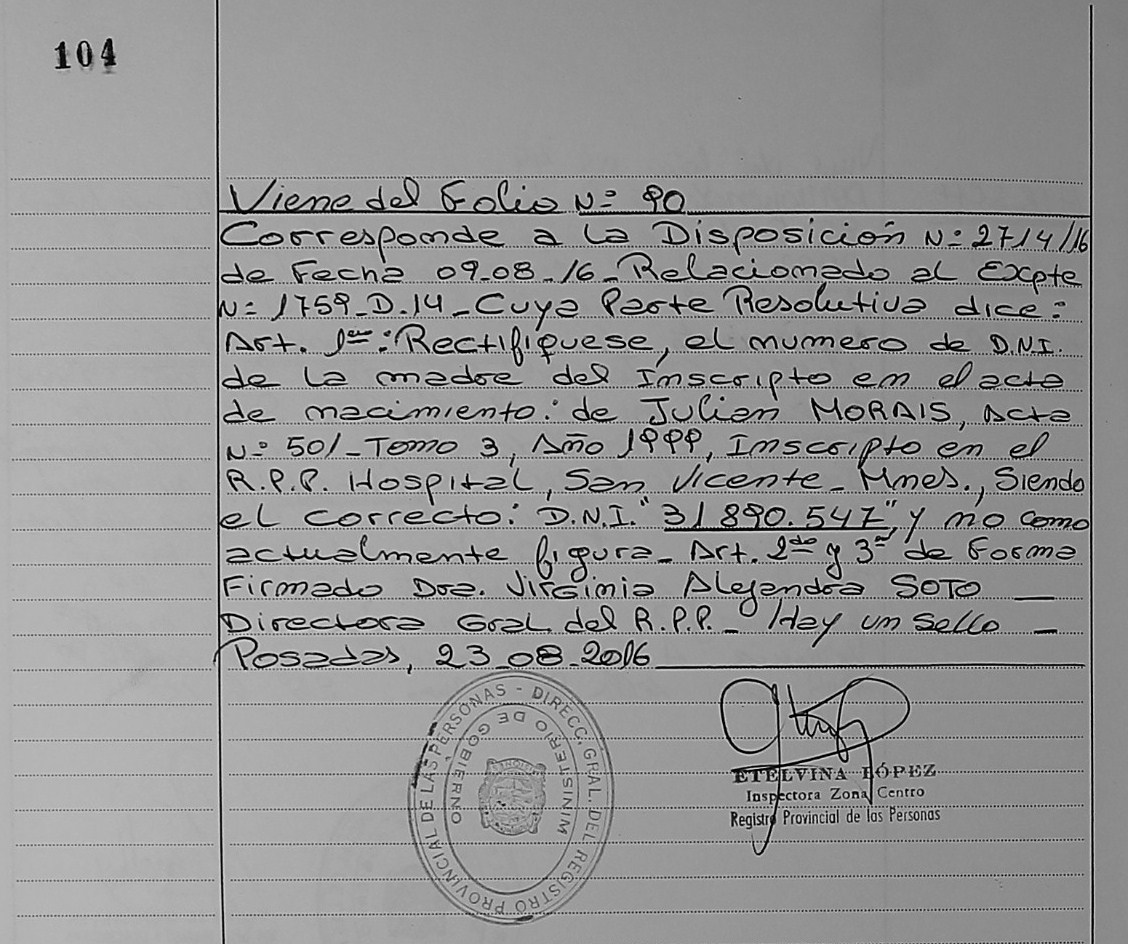 104
Viene del Folio N° 90
Corresponde a la Disposición N° 2714/16
de Fecha 09-08-16- Relacionado al Expte
N° 1759-D.14-Cuya Parte Resolutiva dice:
Art. 1ero: Rectifiquese, el numero de D.N.I.
de la madre del Inscripto en el acta
de nacimiento: de Julian MORAIS, Acta
N° 501-Tomo 3, Año 1999, Inscripto en el
R.P.P. Hospital, San Vicente-Mnes., Siendo
el correcto: D.N.I. "31890.547", y no como
actualmente figura- Art. 2do y 3ro de Forma
Firmado Dra. Virginia Alejandra SOTO —
Directora Gral del R.P.P.- Hay un Sello —
Posadas, 23-08-2016
DIRECC. GRAL. DEL REGISTRO PROVINCIAL DE LAS PERSONAS -
MINISTERIO DE GOBIERNO
ETELVINA LÓPEZ
Inspectora Zona Centro
Registro Provincial de las Personas